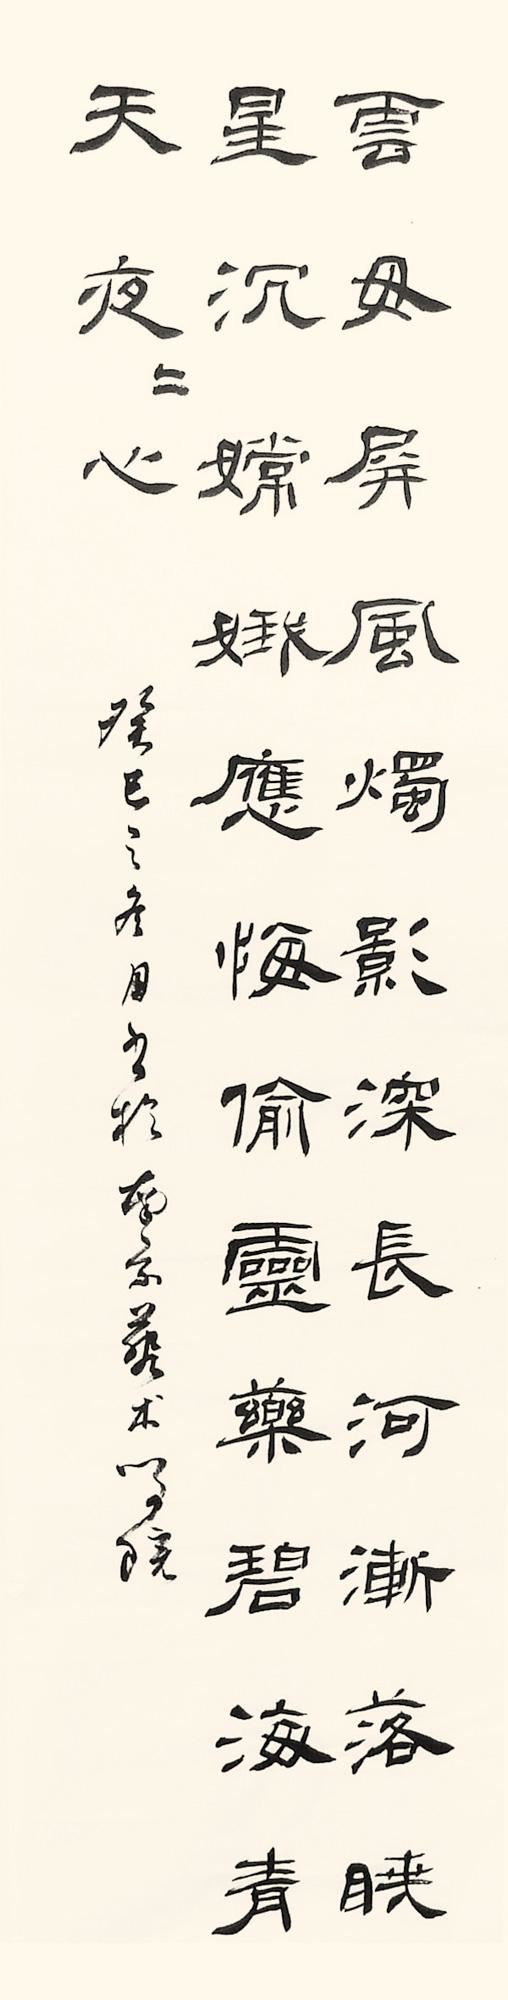 雲母屏風燭影深長河漸落曉
星沉嫦娥應悔偷靈藥碧海青
天夜〻心
癸巳之冬月書於南京藝术學院